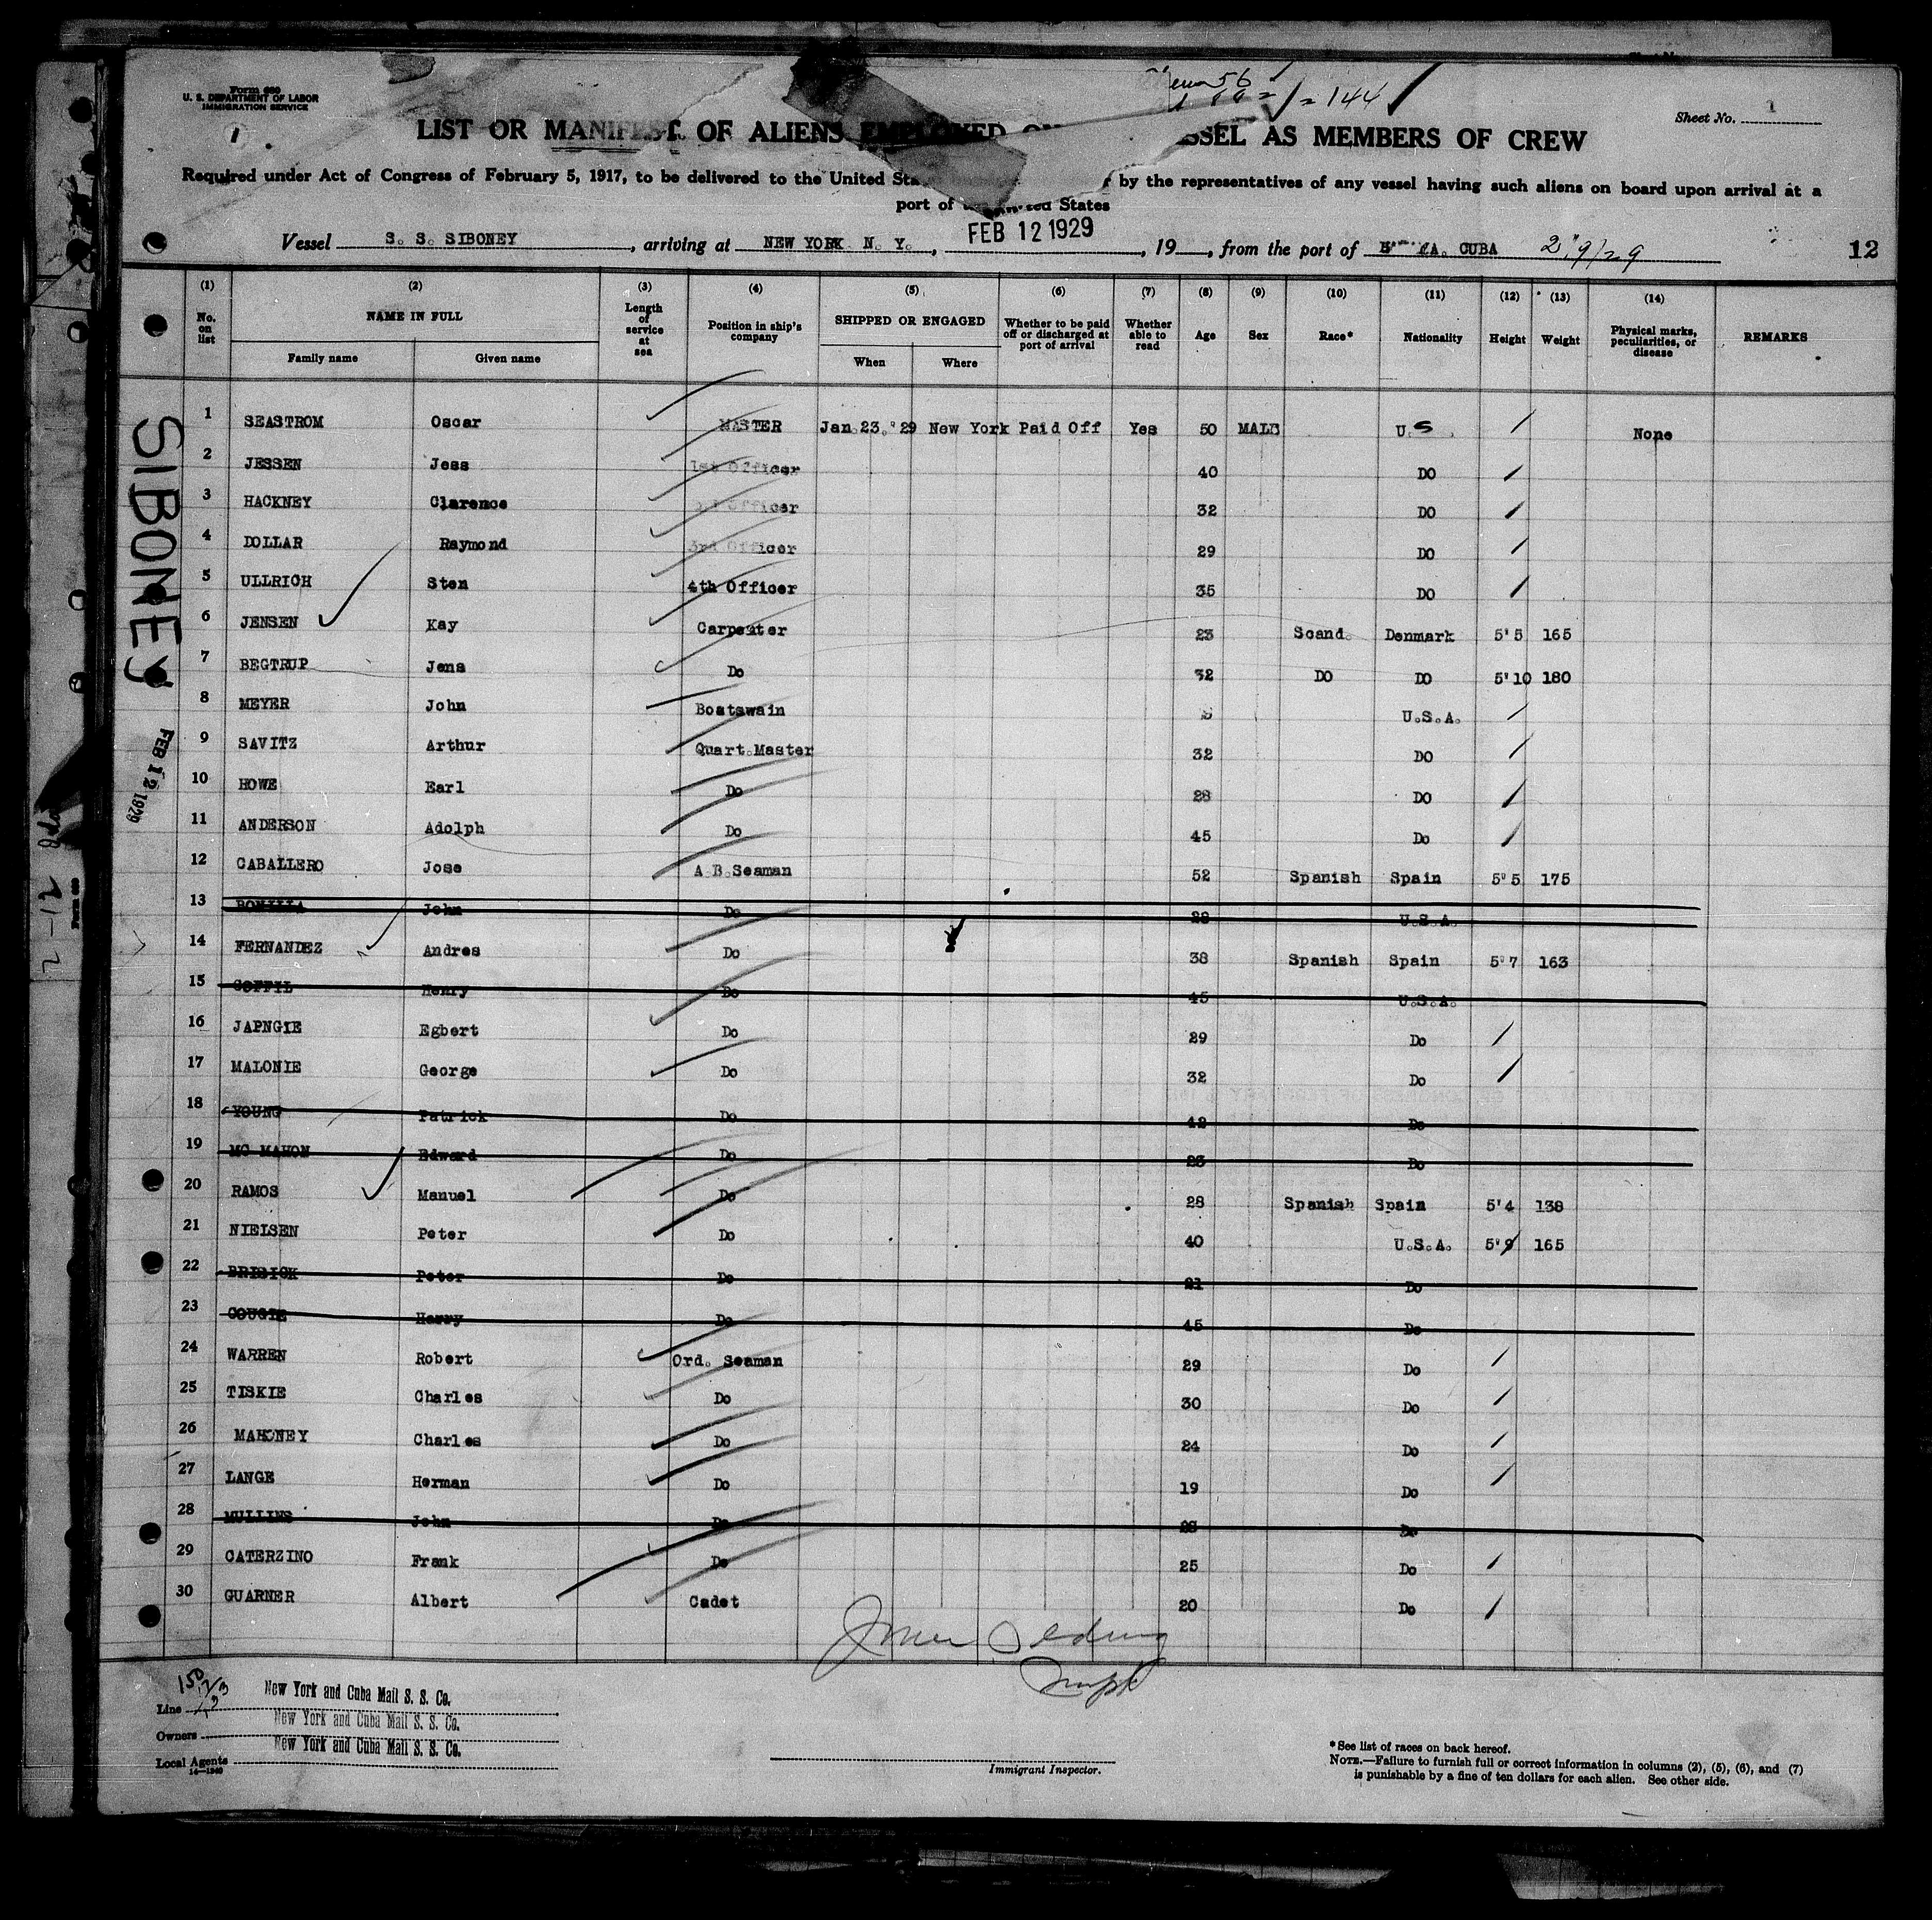 Form 680
U. S. DEPARTMENT OF LABOR
IMMIGRATION SERVICE
1
56
= 144
Sheet No. 1
LIST OR MANIFEST OF ALIENS EMPLOYED ON VESSEL AS MEMBERS OF CREW
Required under Act of Congress of February 5, 1917, to be delivered to the United States by the representatives of any vessel having such aliens on board upon arrival at a
port of the United States
Vessel S. S. SIBONEY, arriving at NEW YORK N. Y., FEB 12 1929, 19 , from the port of CUBA 2/9/29
12
(1) (2) (3) (4) (5) (6) (7) (8) (9) (10) (11) (12) (13) (14)
No. on list NAME IN FULL Length of service at sea Position in ship's company SHIPPED OR ENGAGED Whether to be paid off or discharged at port of arrival Whether able to read Age Sex Race* Nationality Height Weight Physical marks, peculiarities, or disease REMARKS
Family name Given name When Where
1 SEASTROM Oscar MASTER Jan.23.'29 New York Paid Off Yes 50 MALE U.S. None
2 JESSEN Jess 1st Officer 40 DO
3 HACKNEY Clarence Officer 32 DO
4 DOLLAR Raymond 3rd Officer 29 DO
5 ULLRICH Sten 4th Officer 35 DO
6 JENSEN Kay Carpenter 23 Scand. Denmark 5'5 165
7 BEGTRUP Jens Do 32 DO DO 5'10 180
8 MEYER John Boatswain U.S.A.
9 SAVITZ Arthur Quart.Master 32 DO
10 HOWE Earl Do 28 DO
11 ANDERSON Adolph Do 45 Do
12 CABALLERO Jose A B Seaman 52 Spanish Spain 5'5 175
13 BONILLA John Do 28 U.S.A.
14 FERNANDEZ Andres Do 38 Spanish Spain 5'7 163
15 COFFIL Henry Do 45 U.S.A.
16 JAPNGIE Egbert Do 29 Do
17 MALONIE George Do 32 Do
18 YOUNG Patrick Do 42 Do
19 MC MAHON Edward Do 23 Do
20 RAMOS Manuel Do 28 Spanish Spain 5'4 138
21 NIELSEN Peter Do 40 U.S.A. 5'9 165
22 BRISICK Peter Do 21 Do
23 COUGIE Harry Do 45 Do
24 WARREN Robert Ord. Seaman 29 Do
25 TISKIE Charles Do 30 Do
26 MAHONEY Charles Do 24 Do
27 LANGE Herman Do 19 Do
28 MULLINS John Do 28 Do
29 CATERZINO Frank Do 25 Do
30 GUARNER Albert Cadet 20 Do
SIBONEY
FEB 12 1929
Form 680
Line New York and Cuba Mail S. S. Co.
Owners New York and Cuba Mail S. S. Co.
Local Agents New York and Cuba Mail S. S. Co.
14—1240
Immigrant Inspector.
*See list of races on back hereof.
NOTE.—Failure to furnish full or correct information in columns (2), (5), (6), and (7)
is punishable by a fine of ten dollars for each alien. See other side.